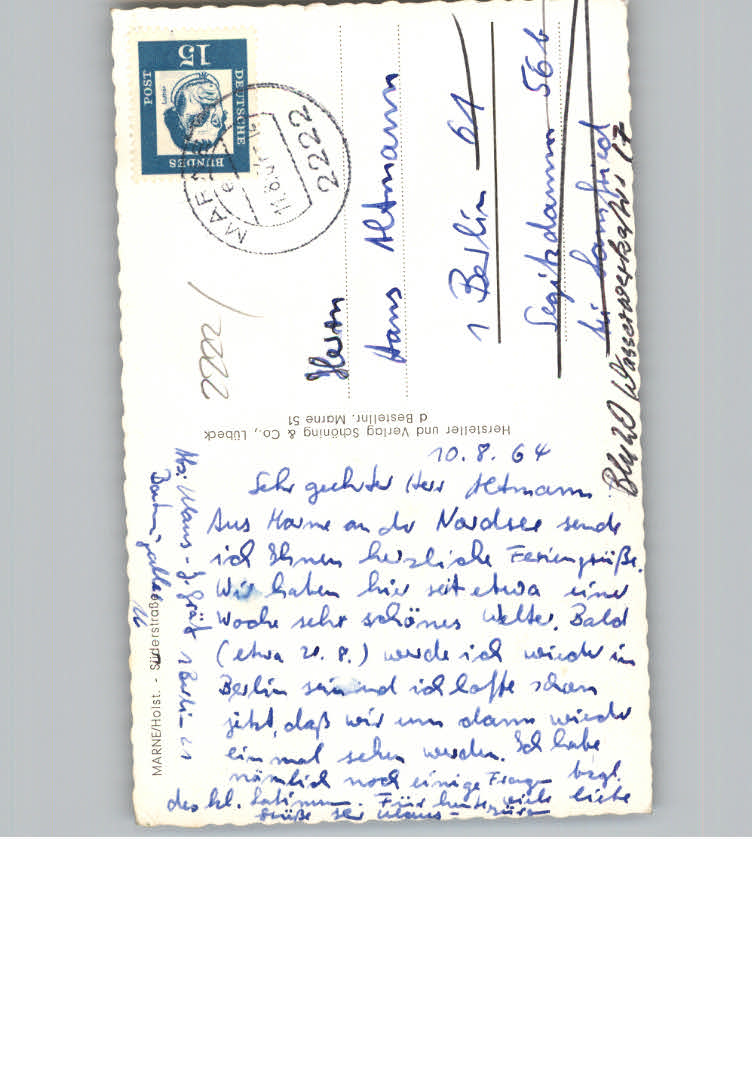 10. 8. 64
Sehr geehrter Herr Altmann
Aus Marne an der Nordsee sende
ich Ihnen herzliche Feriengrüße.
Wir haben hier seit etwa einer
Woche sehr schönes Wetter. Bald
(etwa 20. 8.) werde ich wieder in
Berlin sein und ich hoffe schon
jetzt, daß wir uns dann wieder
einmal sehen werden. Ich habe
nämlich noch einige Fragen bzgl.
des kl. Latinum. Für heute viele liebe
Grüße Ihr Klaus-Jürgen
Abs. Klaus-J. Gräf 1 Berlin 61
Herrn
Hans Altmann
1 Berlin 61
Segitzdamm 56b
bei
Wasserwerk
2222
DEUTSCHE
BUNDES
POST
15
2222
MARNE
e
11.8.64
Hersteller und Verlag Schöning & Co., Lübeck
d Bestellnr. Marne 51
MARNE/Holst. - Süderstraße